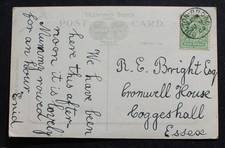 POST CARD
We have been
here this after
noon it is lovely
Mummy rowed
for an hour
Enid
R. E. Bright Esq
Cromwell House
Coggeshall
Essex